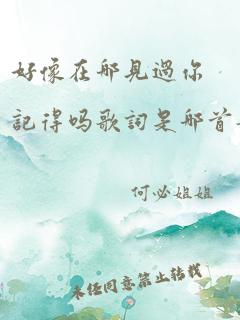 好像在那見過你
記得吗歌詞是那首
何必姐姐
未经同意禁止转载